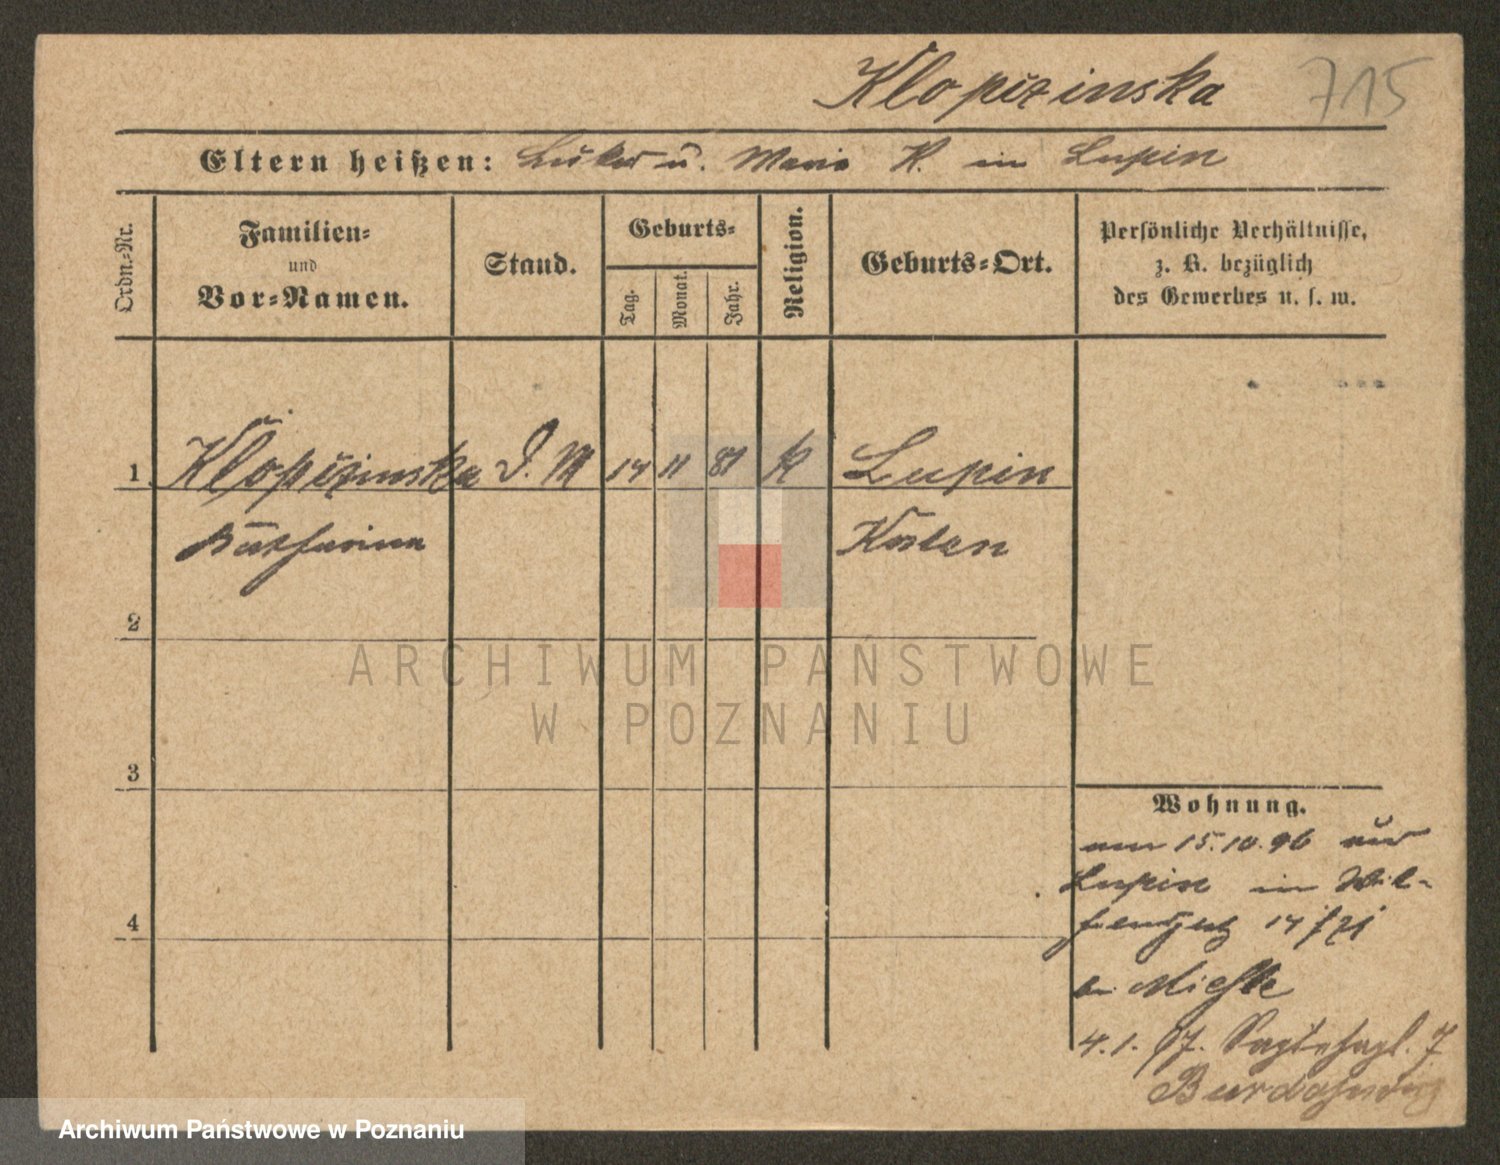 Klopizinska 715
Eltern heißen: u. Maria K. in Lupin
Ordn.-Nr.
Familien-
und
Vor-Namen.
Stand.
Geburts-
Tag.
Monat.
Jahr.
Religion.
Geburts-Ort.
Persönliche Verhältnisse,
z. B. bezüglich
des Gewerbes u. s. w.
1 Klopizinska D. M 14 11 81 K Lupin
Katharina Kosten
2
3
4
Wohnung.
am 15.10.96 aus
Lupin in Wil-
14
bei
4.1. 97. 7
ARCHIWUM PAŃSTWOWE
W POZNANIU
Archiwum Państwowe w Poznaniu